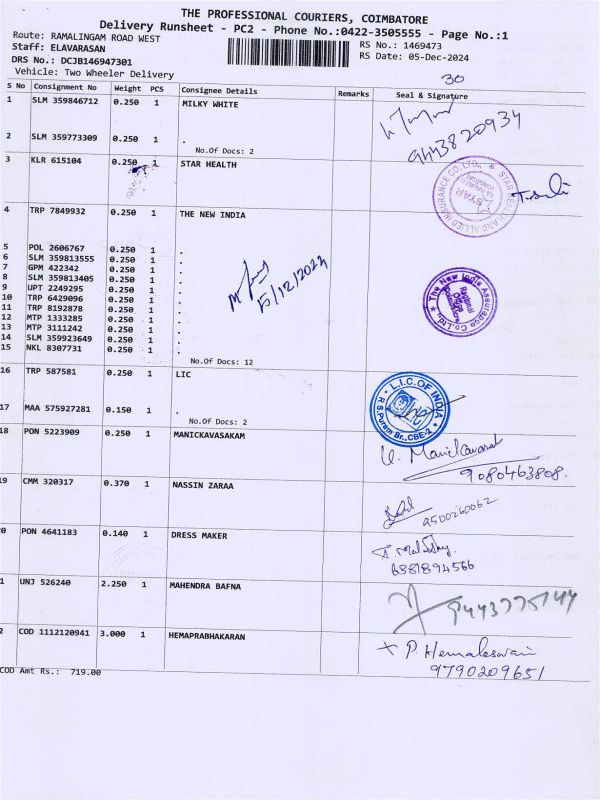 THE PROFESSIONAL COURIERS, COIMBATORE
Delivery Runsheet - PC2 - Phone No.:0422-3505555 - Page No.:1
Route: RAMALINGAM ROAD WEST
RS No.: 1469473
Staff: ELAVARASAN
RS Date: 05-Dec-2024
DRS No.: DCJB146947301
Vehicle: Two Wheeler Delivery
30
S No Consignment No Weight PCS Consignee Details Remarks Seal & Signature
1 SLM 359846712 0.250 1 MILKY WHITE
9443820934
2 SLM 359773309 0.250 1 .
No.Of Docs: 2
3 KLR 615104 0.250 1 STAR HEALTH
STAR HEALTH AND ALLIED INSURANCE CO. LTD.,
4 TRP 7849932 0.250 1 THE NEW INDIA
5 POL 2606767 0.250 1 .
6 SLM 359813555 0.250 1 .
7 GPM 422342 0.250 1 .
8 SLM 359813405 0.250 1 .
9 UPT 2249295 0.250 1 .
10 TRP 6429096 0.250 1 .
11 TRP 8192878 0.250 1 .
12 MTP 1333285 0.250 1 .
13 MTP 3111242 0.250 1 .
14 SLM 359923649 0.250 1 .
15 NKL 8307731 0.250 1 .
5/12/2024
The New India Assurance Co. Ltd.,
Regional Office
No.Of Docs: 12
16 TRP 587581 0.250 1 LIC
L.I.C. OF INDIA
R S Puram Br., CBE-2
17 MAA 575927281 0.150 1 .
No.Of Docs: 2
18 PON 5223909 0.250 1 MANICKAVASAKAM
9080463808.
9 CMM 320317 0.370 1 NASSIN ZARAA
9500260062
0 PON 4641183 0.140 1 DRESS MAKER
1 UNJ 526240 2.250 1 MAHENDRA BAFNA
2 COD 1112120941 3.000 1 HEMAPRABHAKARAN
P. Hemaleswari
9790209651
COD Amt Rs.: 719.00